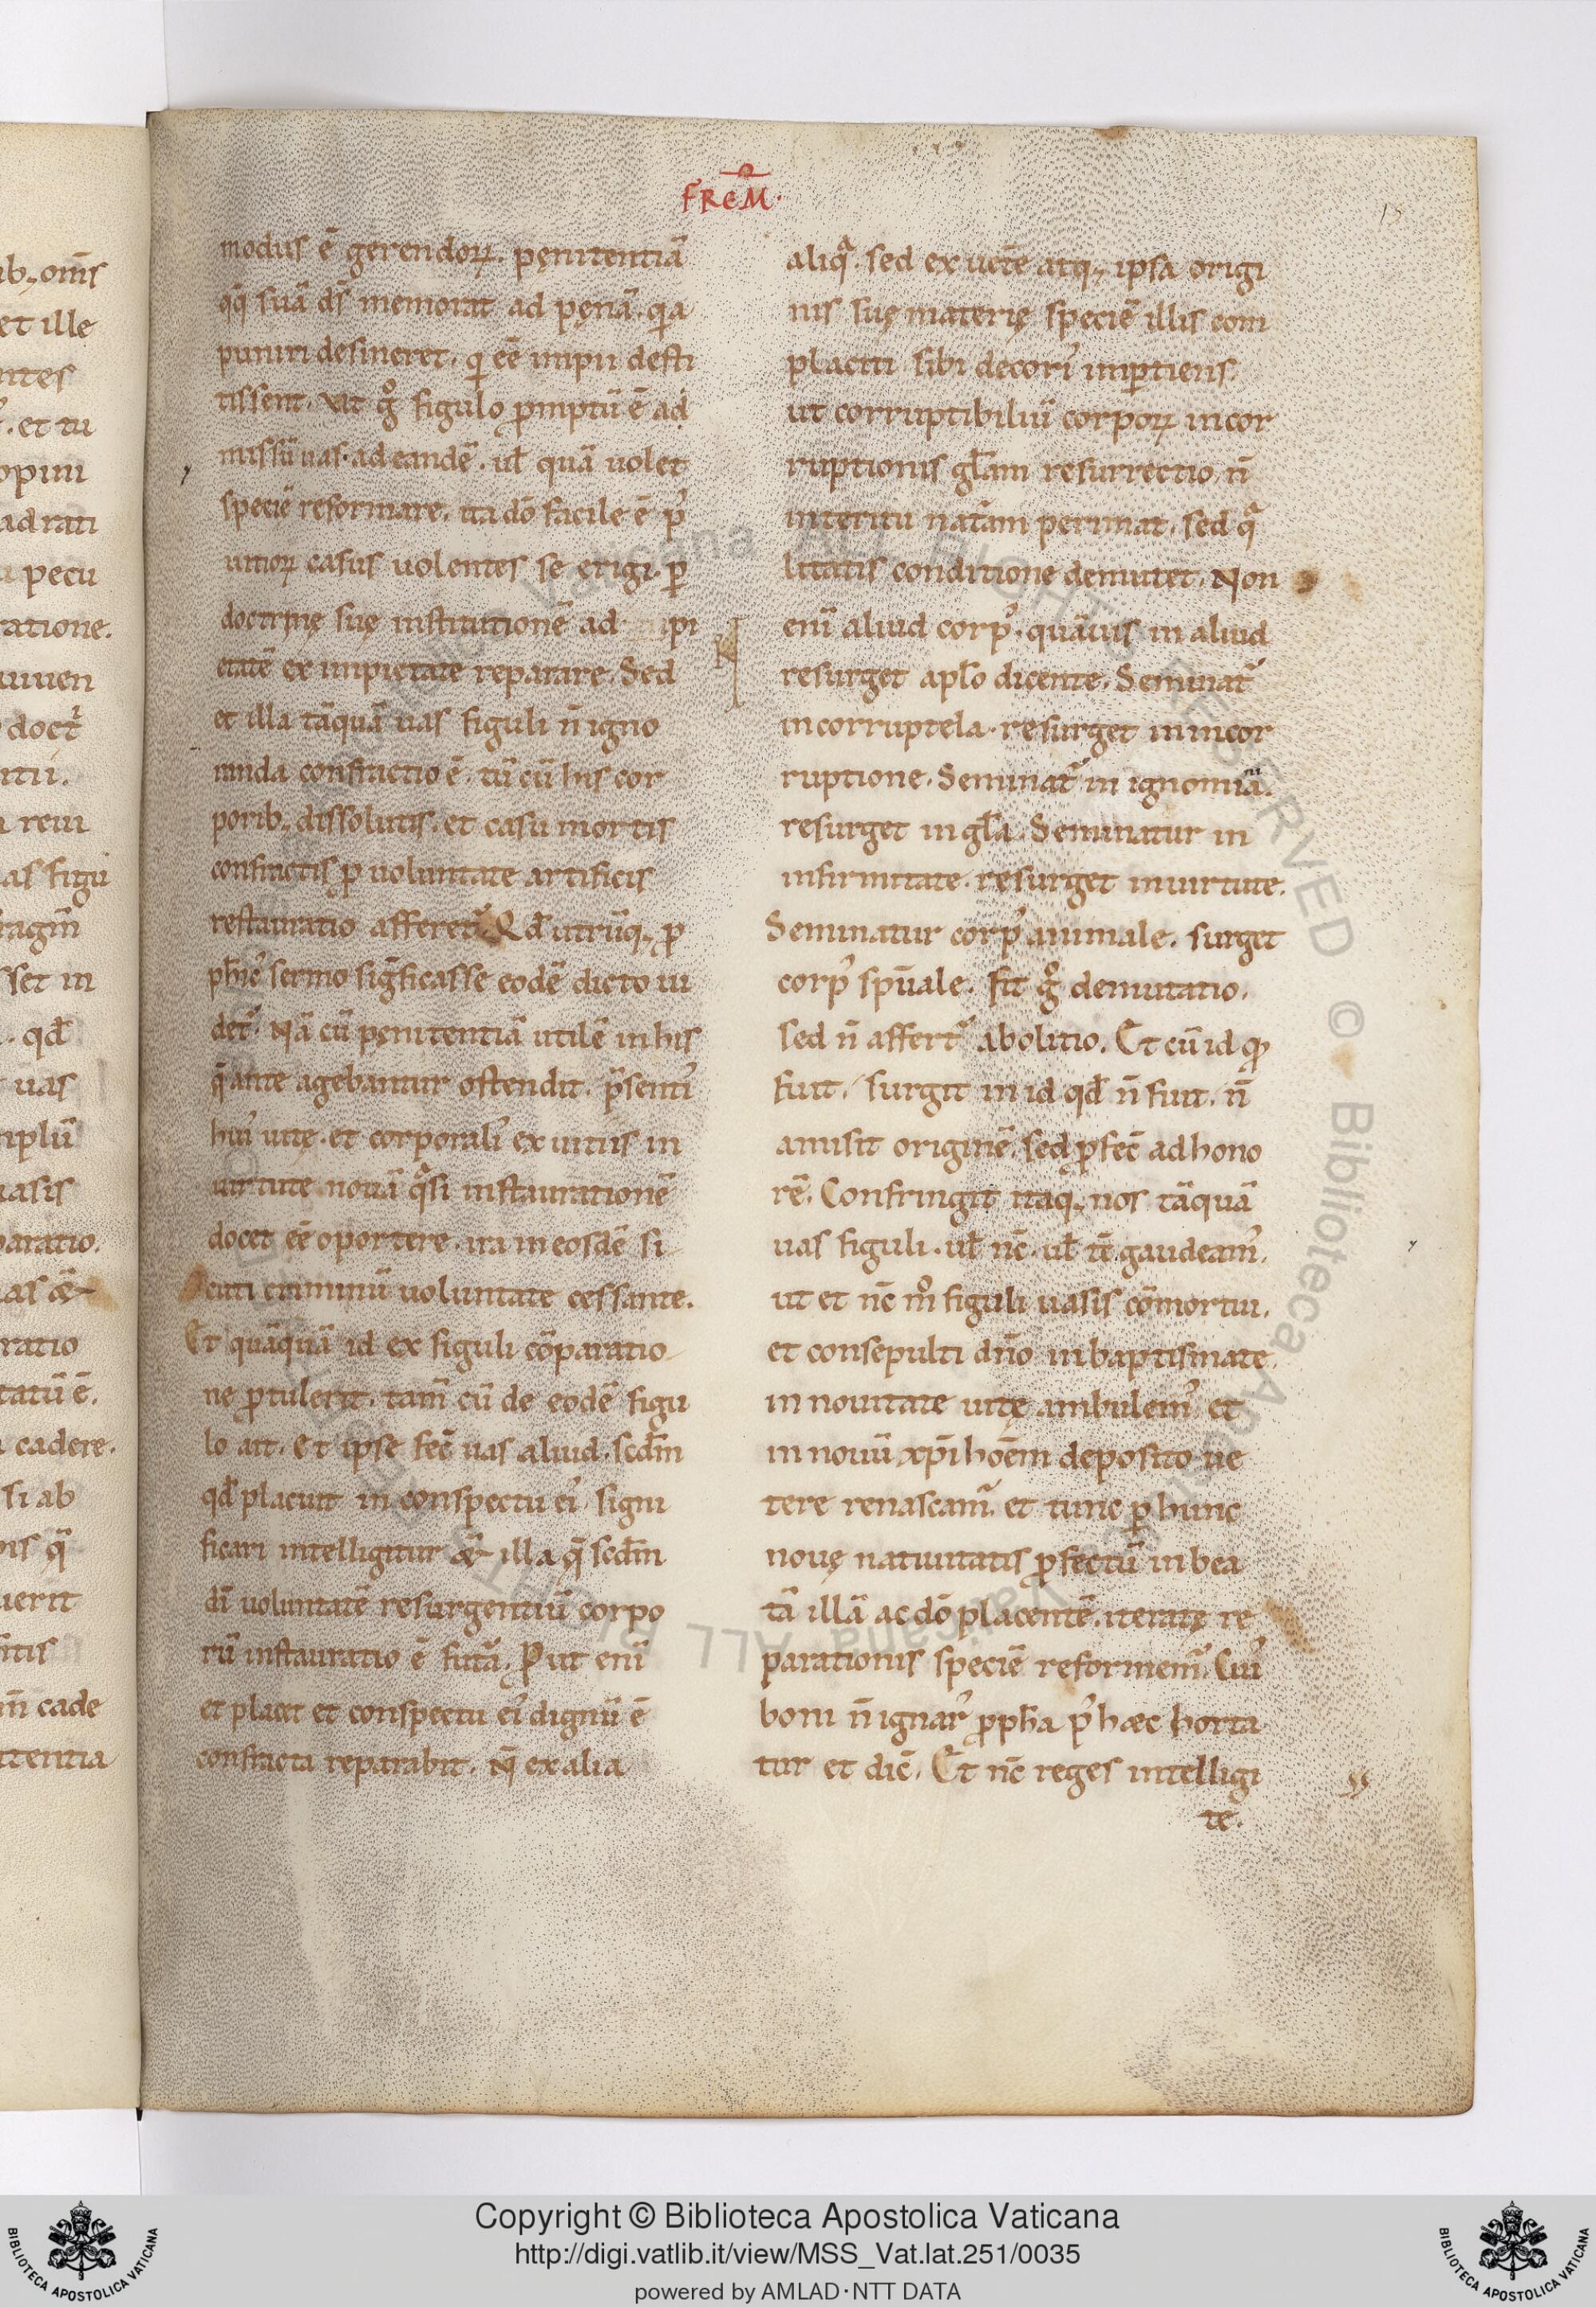 FREM̄.
15
modus ē gerendoꝝ. pęnitentiā
qq̄ suā ds̄ memorat ad pęnā. qia
puniri desineret. qi eē impii desti
tissent. Vit gͦ figulo ꝓmptū ē ad
missū uas. ad eandē. ul̄ quā uolet
speciē reformare. ita dō facile ē pꝰ
uitioꝝ casus uolentes se erigi. ꝑ
doctrinę suę institutionē ad pi
etatē ex impietate reparare. Sed
et illa tāquā uas figuli n̄ igno
randa confractio ē. tū cū his cor
porib; dissolutis. et casu mortis
confractis ꝑ uoluntate artificis
restauratio afferet᷑. Qd̄ utrūq; ꝓ
ph̄icꝰ sermo sigficasse eodē dicto ui
det᷑. Nā cū pęnitentiā utilē in his
q̄ ante agebantur ostendit. p̄sentiꝰ
huiꝰ uitę. et corporaliꝰ ex uitiis in
uirtute nouā qͣsi instaurationē
docet eē oportere. ita in eosdē si
cuti criminū uoluntate cessante.
Et quāquā id ex figuli cōparatio
ne ꝓtulerit. tam̄ cū de eodē figu
lo ait. Et ipse fec̄ uas aliud. scd̄m
qd̄ placuit in conspectu eiꝰ signi
ficari intelligitur illa q̄ scd̄m
dī uoluntatē resurgentiū corpo
rū instauratio ē futͣa. Put enī
et placet et conspectu eiꝰ dignū ē
confracta reparabit. Nͦ ex alia
aliqͣ. sed ex uet̄e atq; ipsa origi
nis suę materię speciē illis com
placiti sibi decoriꝰ imꝑtiens.
ut corruptibiliū corpoꝝ incor
ruptionis gl̄am resurrectio n̄
interitu nat̄am perimat. sed qͣ
litatis conditione demutet. Non
enī aliud corpꝰ. quāuis in aliud
resurget apl̄o dicente. Seminat᷑
in corruptela. resurget in incor
ruptione. Seminat᷑ in ignomiaͫ.
resurget in gl̄a. Seminatur in
infirmitate. resurget in uirtute.
Seminatur corpꝰ animale. surget
corpꝰ sp̄uale. Fit gͦ demutatio.
sed n̄ affert᷑ abolitio. Et cū id qͦ
fuit. surgit in id qd̄ n̄ fuit. n̄
amisit originē. sed ꝓfec̄ ad hono
rē. Confringit itaq; nos tāquā
uas figuli. ul̄ nc̄. ul̄ tc̄. gaudeamꝰ.
ut et nc̄ mͦ figuli uasis cōmortui.
et consepulti dn̄o in baptismate.
in nouitate uitę ambulemꝰ et
in nouū xp̄i hoēm deposito ue
tere renascam᷑. et tunc ꝑ hunc
nouę natiuitatis ꝓfectū in bea
tā illā ac dō placentē iteratę re
parationis speciē reformem᷑. Cuiꝰ
boni n̄ ignarꝰ ꝓph̄a pꝰ hæc horta
tur et dic̄. Et nc̄ reges intelligi
te.
Copyright © Biblioteca Apostolica Vaticana
http://digi.vatlib.it/view/MSS_Vat.lat.251/0035
powered by AMLAD·NTT DATA